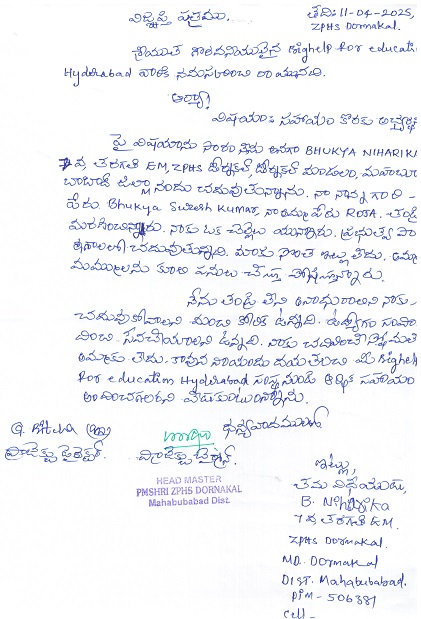 విజ్ఞప్తి పత్రము.
తేది: 11-04-2025,
ZPHS Dornakal.
శ్రీయుత గౌరవనీయులైన Righelp for educati
Hyderabad వారికి నమస్కరించి రాయునది.
ఆర్యా!
విషయం: సహాయం కొరకు అభ్యర్థన
పై విషయాను సారం నేను అనగా BHUKYA NIHARIKA
7వ తరగతి EM, ZPHS డోర్నకల్, డోర్నకల్ మండలం, మహబూ
బాబాద్ జిల్లా నందు చదువుతున్నాను. నా నాన్న గారి
పేరు Bhukya Suresh Kumar, నా అమ్మ పేరు ROJA. తండ్రి
మరణించినాడు. నాకు ఒక చెల్లెలు యున్నారు. ప్రభుత్వ పా
ఠశాలలో చదువుతున్నది. మాకు సొంత ఇల్లు లేదు. అమ్మ
మమ్ములను కూలి పనులు చేస్తూ పోషిస్తున్నారు.
నేను తండ్రి లేని అనాధురాలిని నాకు
చదువుకోవాలని మంచి కోరిక ఉన్నది. ఉద్యోగం సంపా
దించి. సేవచేయాలని ఉన్నది. నాకు చదివించే
అమ్మకు లేదు. కావున నాయందు దయతలచి మీ Righelp
for education Hyderabad సంస్థ నుండి ఆర్థిక సహాయం
అందించగలరని వేడుకుంటున్నాను.
ధన్యవాదములు
HEAD MASTER
PMSHRI ZPHS DORNAKAL
Mahabubabad Dist
ఇట్లు,
తమ విధేయురాలు,
B. Niharika
7వ తరగతి EM.
ZPHS Dornakal.
MD. Dornakal
DIST. Mahabubabad.
PIN - 506381
Cell -